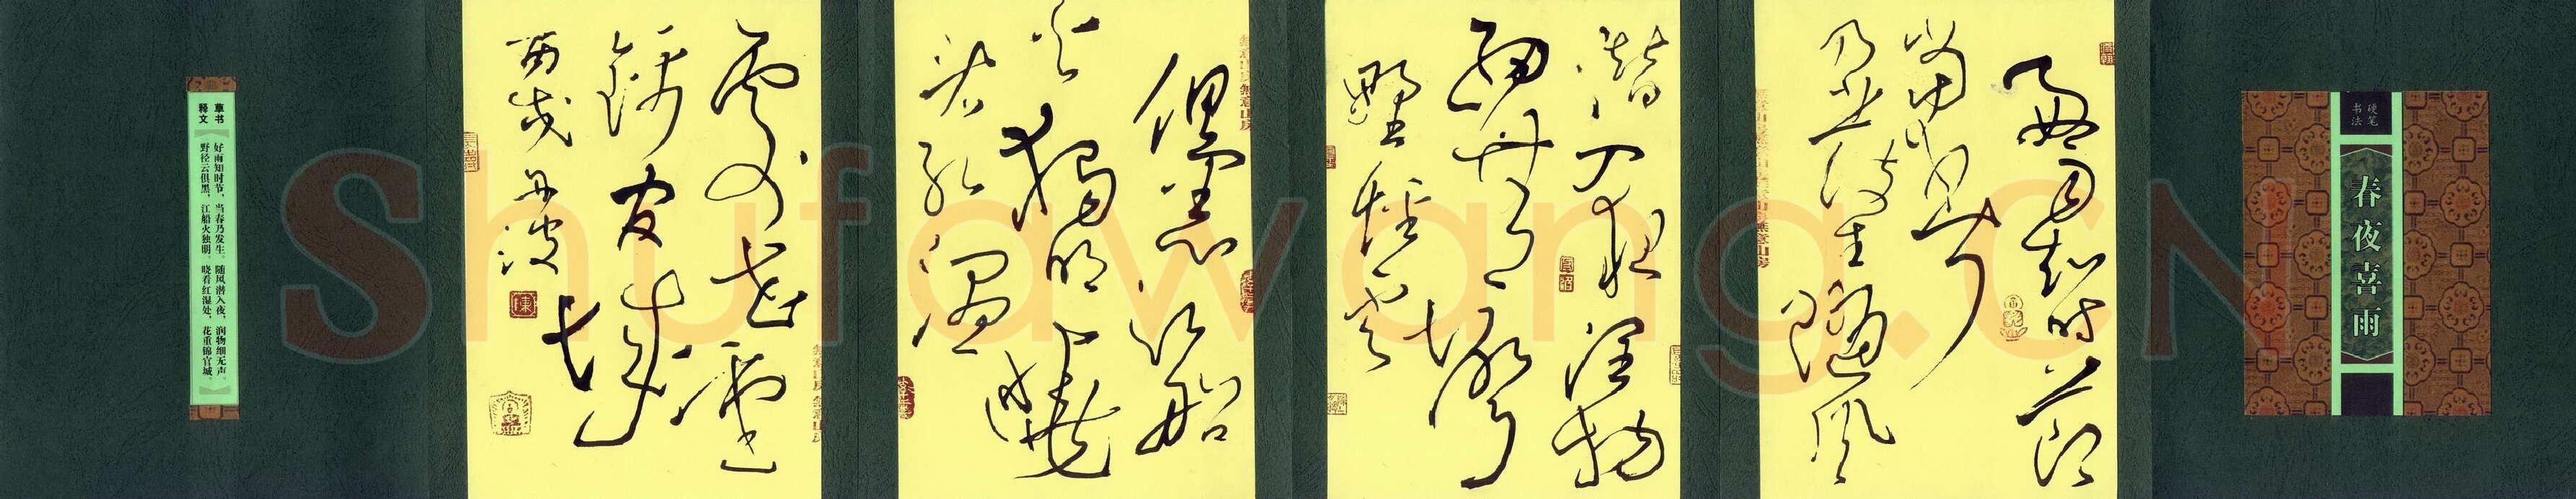 硬笔
书法
春夜喜雨
好雨知时节
当春
乃发生随风
潜入夜润物
细无声
野径云
俱黑江船
火独明晓
看红湿
处花重
锦官城
草书
释文
好雨知时节，当春乃发生。随风潜入夜，润物细无声。
野径云俱黑，江船火独明。晓看红湿处，花重锦官城。
Shufawang.CN